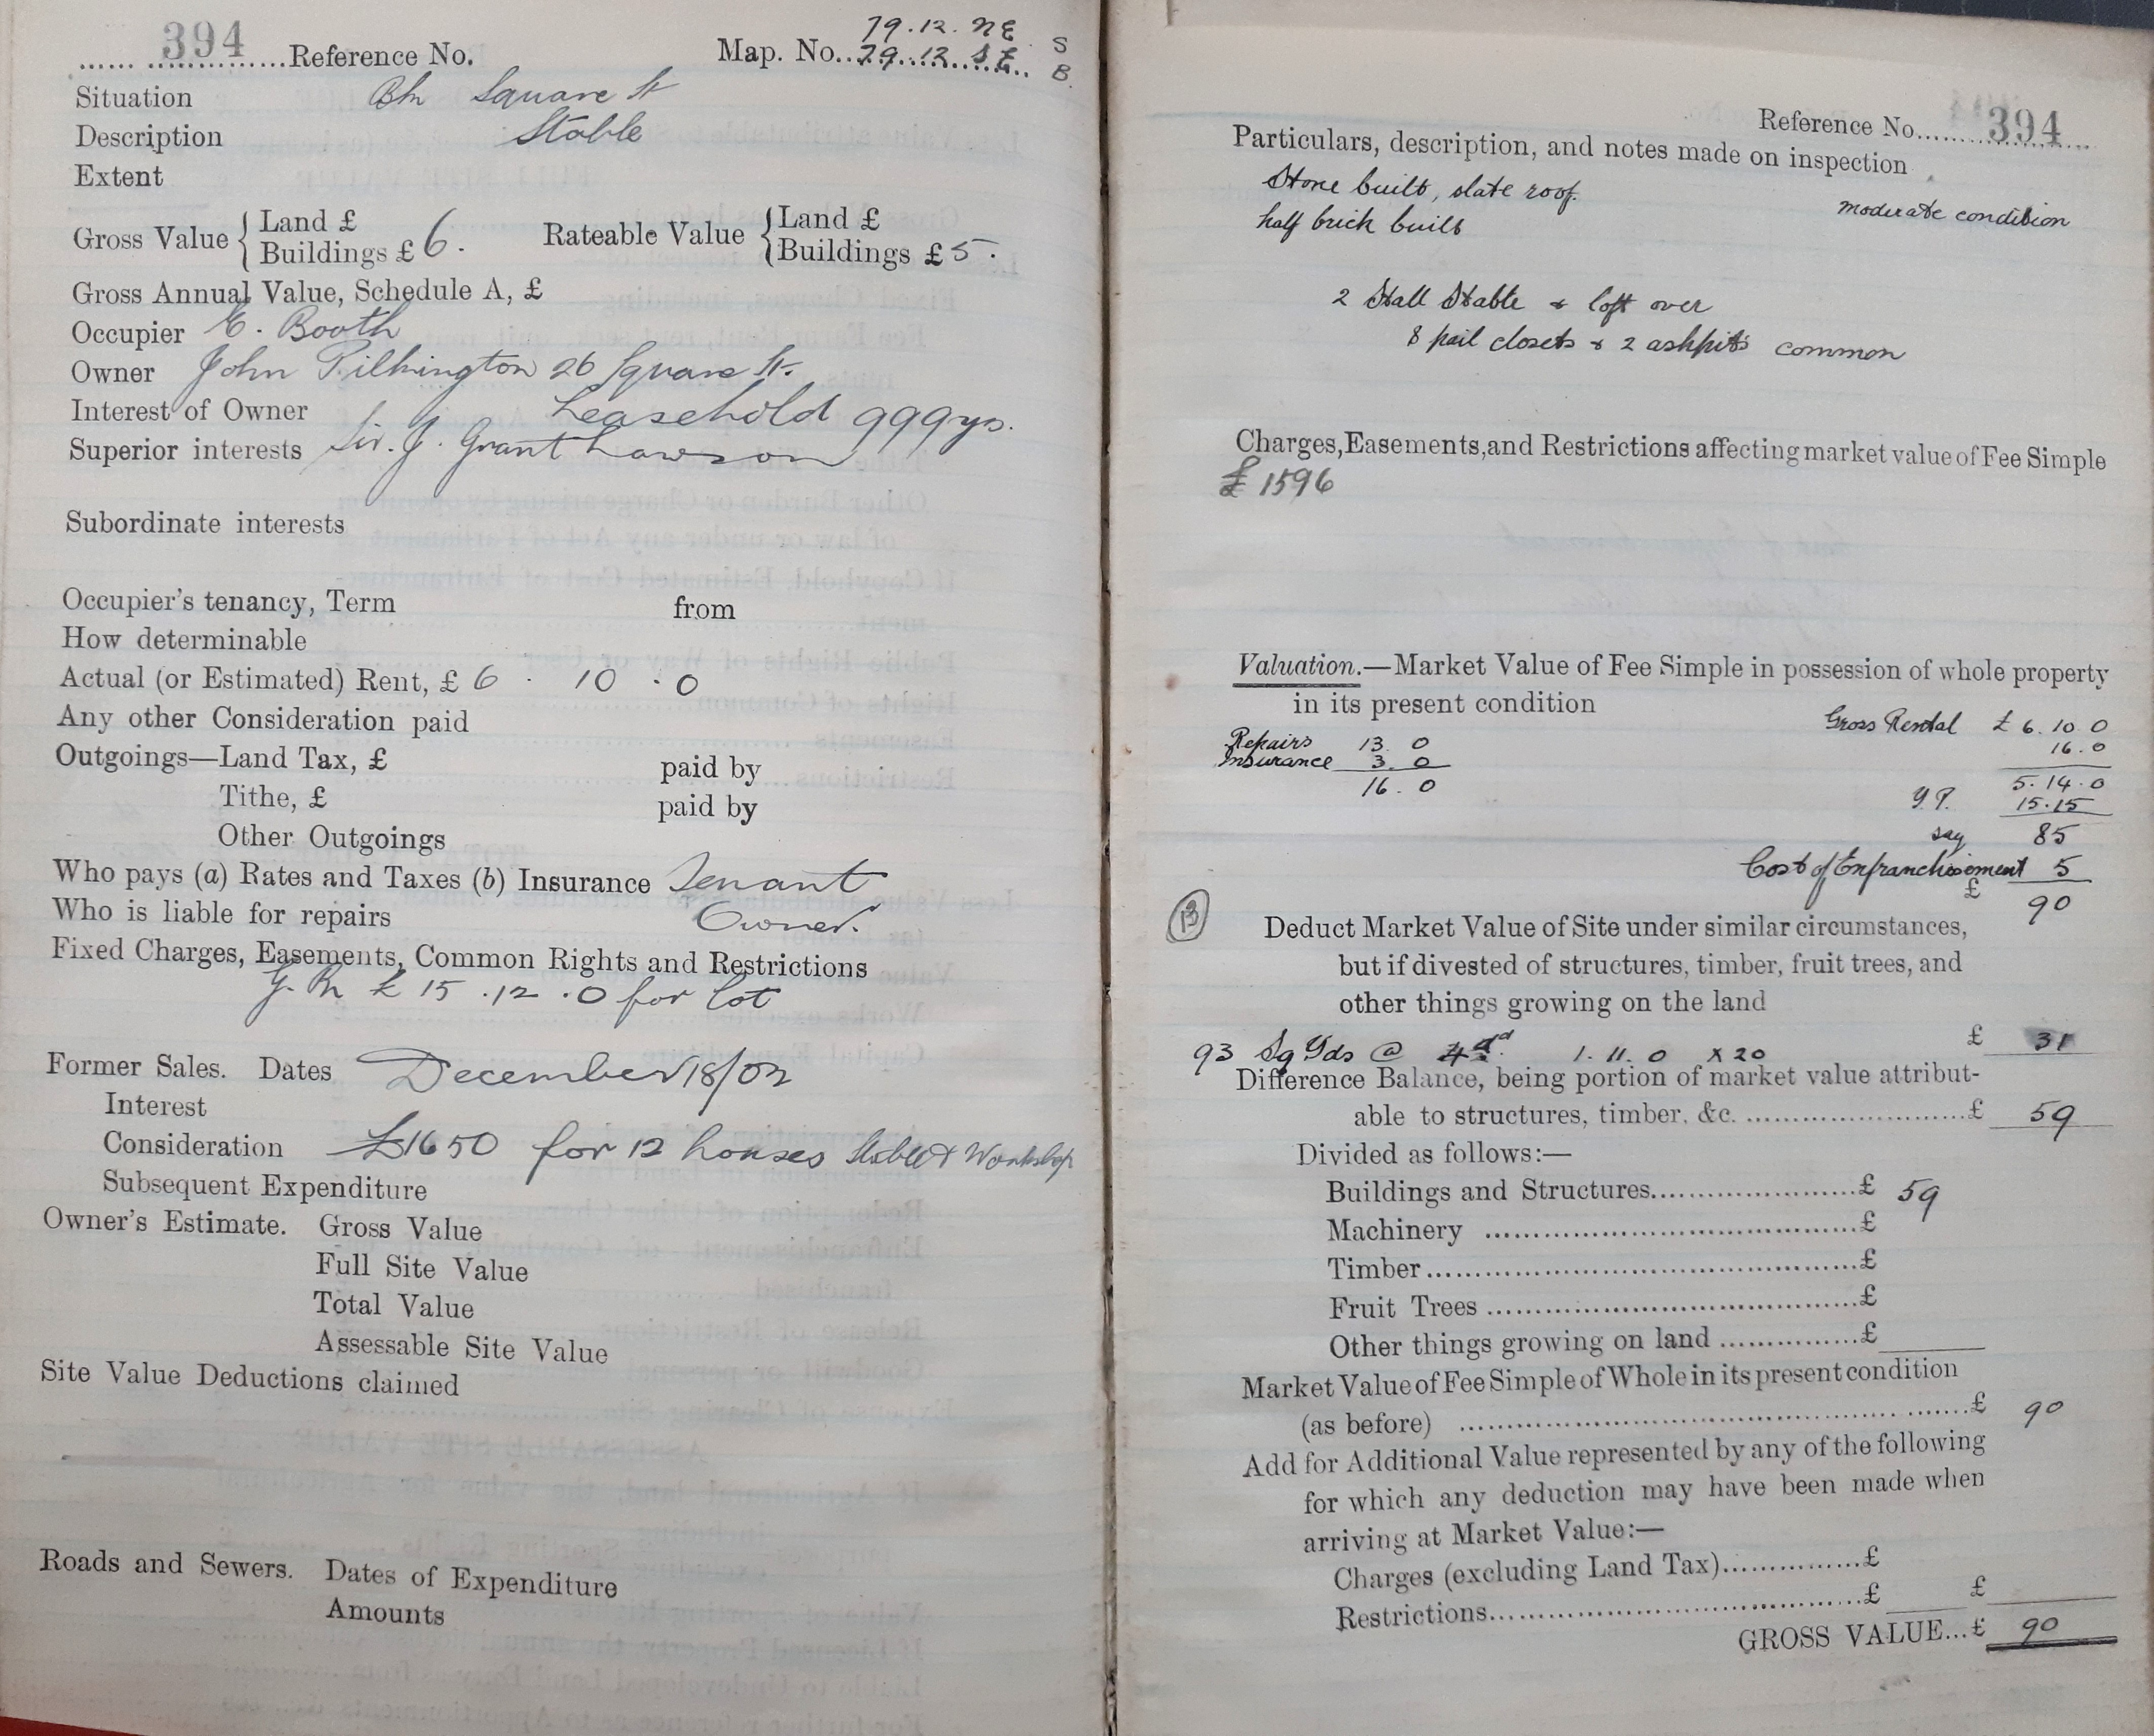 394
79.12. NE S
...... ..............Reference No. Map. No...79.12. SE... B.
Situation Bk Square St
Description Stable
Extent
Gross Value { Land £ Rateable Value { Land £
Buildings £ 6. Buildings £ 5.
Gross Annual Value, Schedule A, £
Occupier E. Booth
Owner John Pilkington 26 Square St.
Interest of Owner Leasehold 999 ys.
Superior interests Sir. J. Grant Lawson
Subordinate interests
Occupier's tenancy, Term from
How determinable
Actual (or Estimated) Rent, £ 6 . 10 . 0
Any other Consideration paid
Outgoings—Land Tax, £ paid by
Tithe, £ paid by
Other Outgoings
Who pays (a) Rates and Taxes (b) Insurance Tenant
Who is liable for repairs Owner.
Fixed Charges, Easements, Common Rights and Restrictions
G. R. £ 15 . 12 . 0 for lot
Former Sales. Dates December 18/02
Interest
Consideration £1650 for 12 houses Stable & Workshop
Subsequent Expenditure
Owner's Estimate. Gross Value
Full Site Value
Total Value
Assessable Site Value
Site Value Deductions claimed
Roads and Sewers. Dates of Expenditure
Amounts
Reference No........394....
Particulars, description, and notes made on inspection
Stone built, slate roof.
moderate condition
half brick built
2 Stall Stable & loft over
8 pail closets & 2 ashpits common
Charges, Easements, and Restrictions affecting market value of Fee Simple
£ 1596
Valuation.—Market Value of Fee Simple in possession of whole property
in its present condition
Gross Rental £ 6. 10 0
Repairs 13. 0 16. 0
Insurance 3. 0
16. 0 5. 14. 0
Y.P. 15.15
say 85
Cost of Enfranchisement 5
£ 90
13 Deduct Market Value of Site under similar circumstances,
but if divested of structures, timber, fruit trees, and
other things growing on the land
93 Sq Yds @ 4d 1. 11. 0 x 20 £ 31
Difference Balance, being portion of market value attribut-
able to structures, timber, &c. ........................£ 59
Divided as follows:—
Buildings and Structures......................£ 59
Machinery ........................................£
Timber..............................................£
Fruit Trees .......................................£
Other things growing on land ...............£
Market Value of Fee Simple of Whole in its present condition
(as before) ................................................£ 90
Add for Additional Value represented by any of the following
for which any deduction may have been made when
arriving at Market Value:—
Charges (excluding Land Tax)...............£
Restrictions.......................................£ £
GROSS VALUE...£ 90